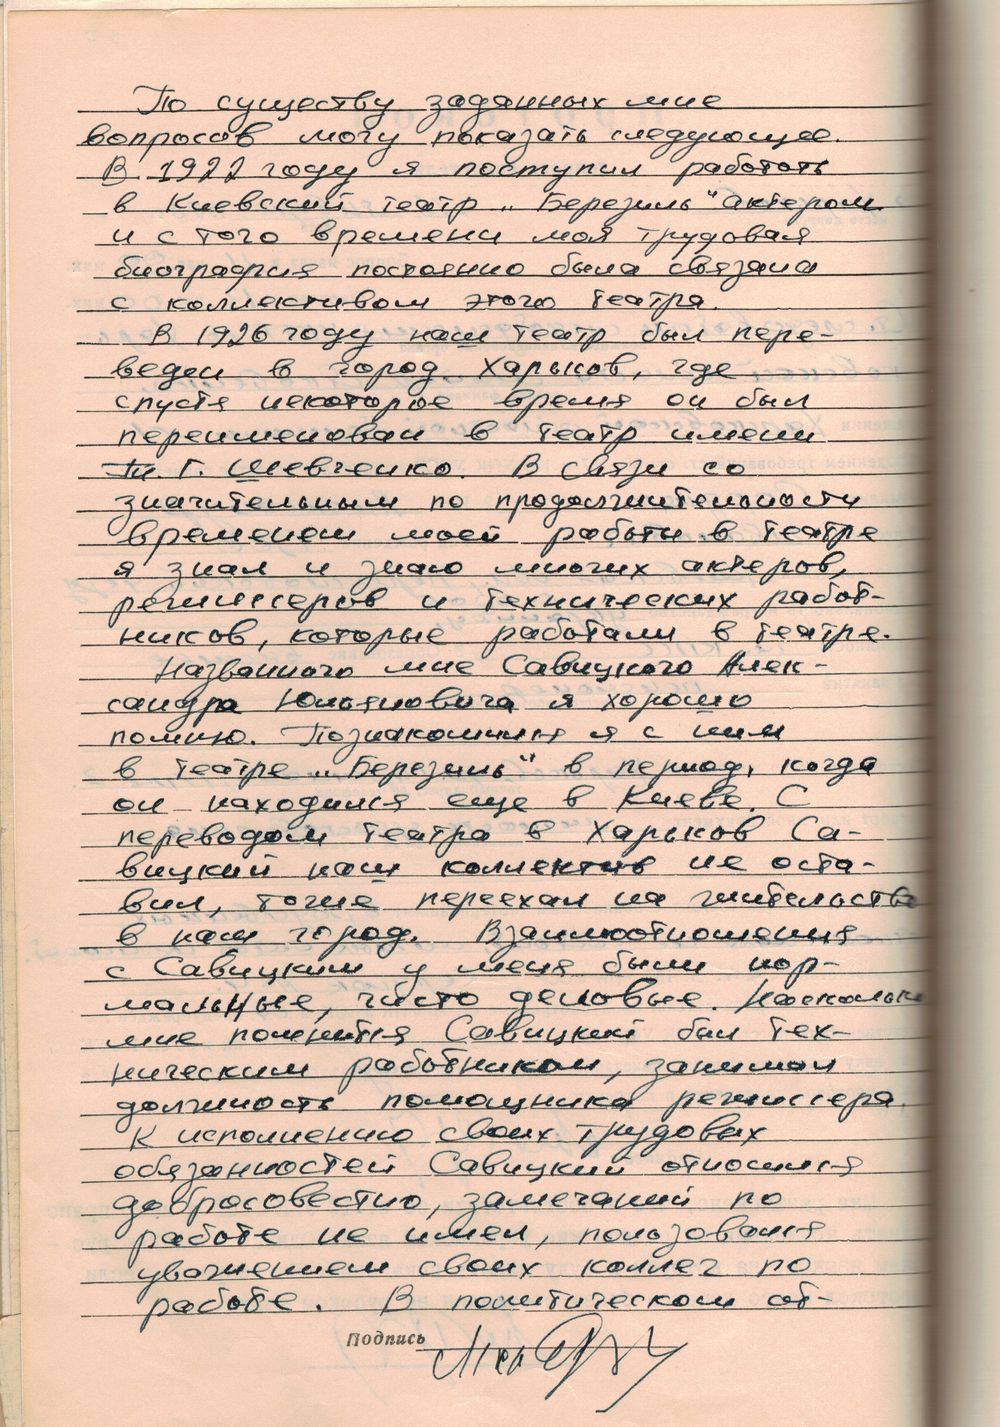 По существу заданных мне
вопросов могу показать следующее.
В 1922 году я поступил работать
в Киевский театр „Березиль" актером
и с того времени моя трудовая
биография постоянно была связана
с коллективом этого театра.
В 1926 году наш театр был пере-
веден в город Харьков, где
спустя некоторое время он был
переименован в театр имени
Т. Г. Шевченко. В связи со
значительным по продолжительности
временем моей работы в театре
я знал и знаю многих актеров,
режиссеров и технических работ-
ников, которые работали в театре.
Названного мне Савицкого Алек-
сандра Юльяновича я хорошо
помню. Познакомился я с ним
в театре „Березиль" в период, когда
он находился еще в Киеве. С
переводом театра в Харьков Са-
вицкий наш коллектив не оста-
вил, тоже переехал на жительство
в наш город. Взаимоотношения
с Савицким у меня были нор-
мальные, чисто деловые. Насколько
мне помнится Савицкий был тех-
ническим работником, занимал
должность помощника режиссера.
К исполнению своих трудовых
обязанностей Савицкий относился
добросовестно, замечаний по
работе не имел, пользовался
уважением своих коллег по
работе. В политическом от-
Подпись